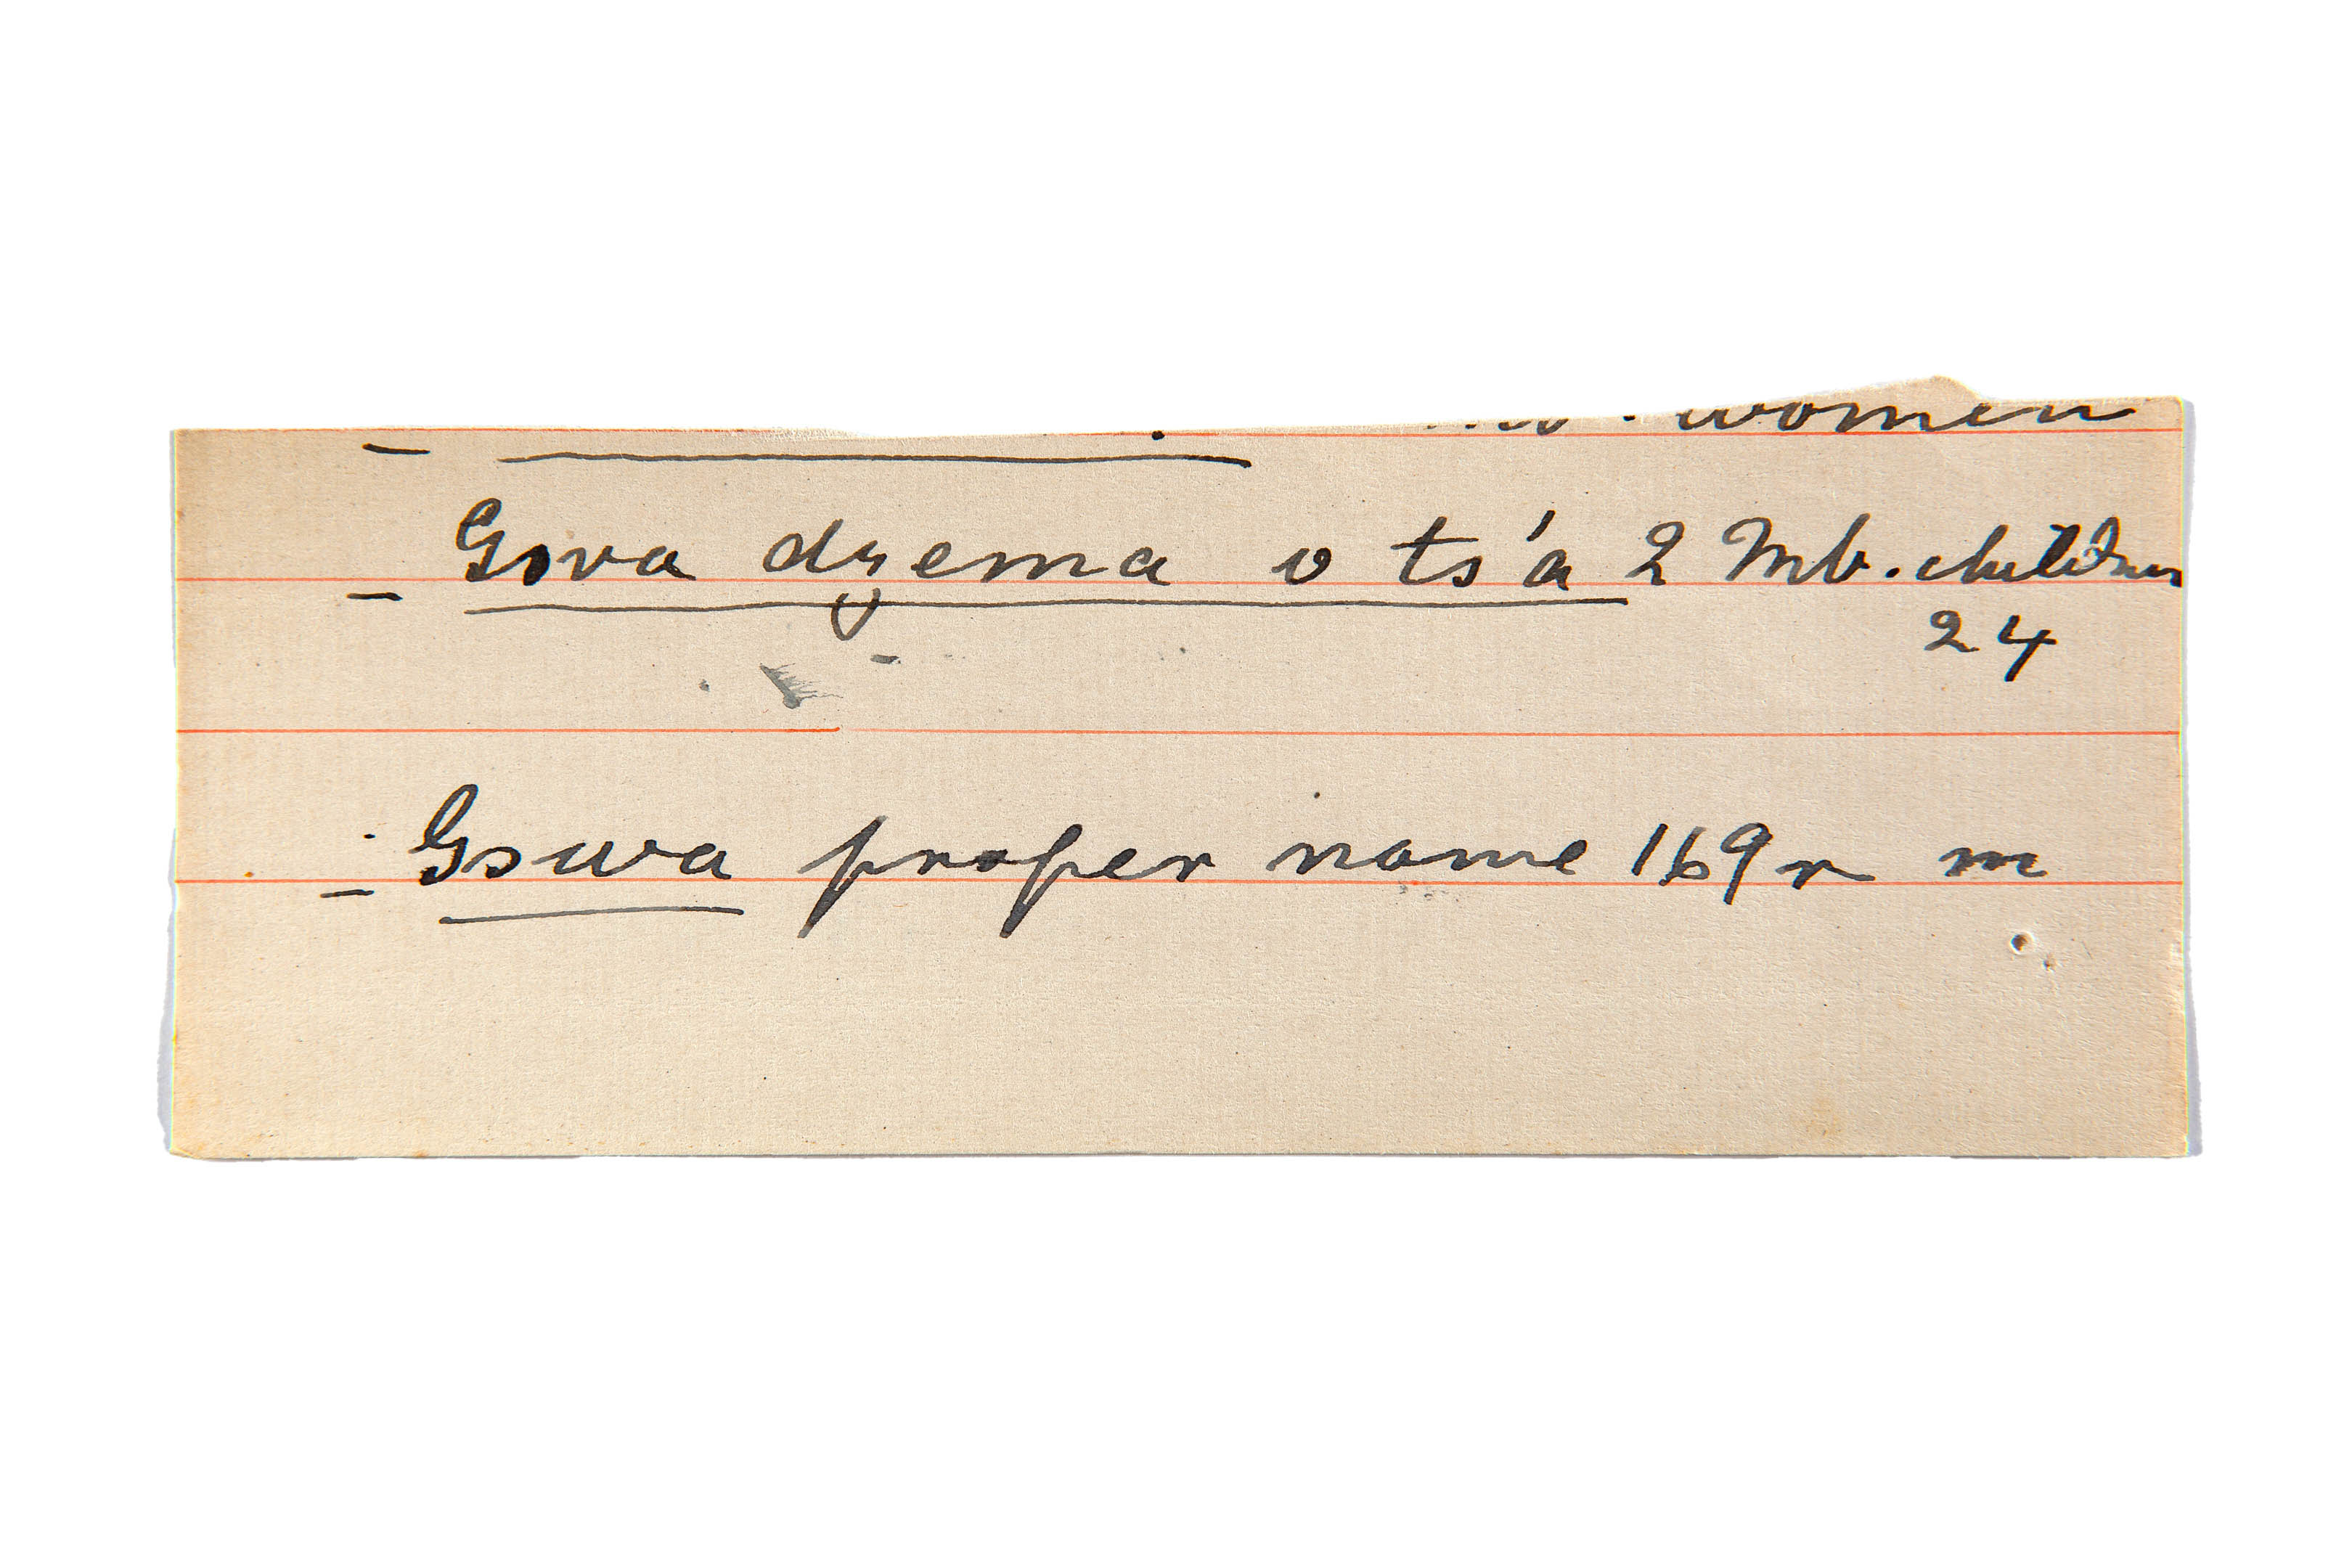 women
Gova dzema o ts'a 2 Mb. children
24
Gowa proper name 169r m